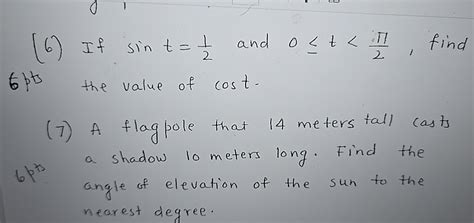 (6) If sin t = 1/2 and 0 ≤ t < π/2, find
6 pts
the value of cos t.
(7) A flagpole that 14 meters tall casts
a shadow 10 meters long. Find the
6 pts
angle of elevation of the sun to the
nearest degree.